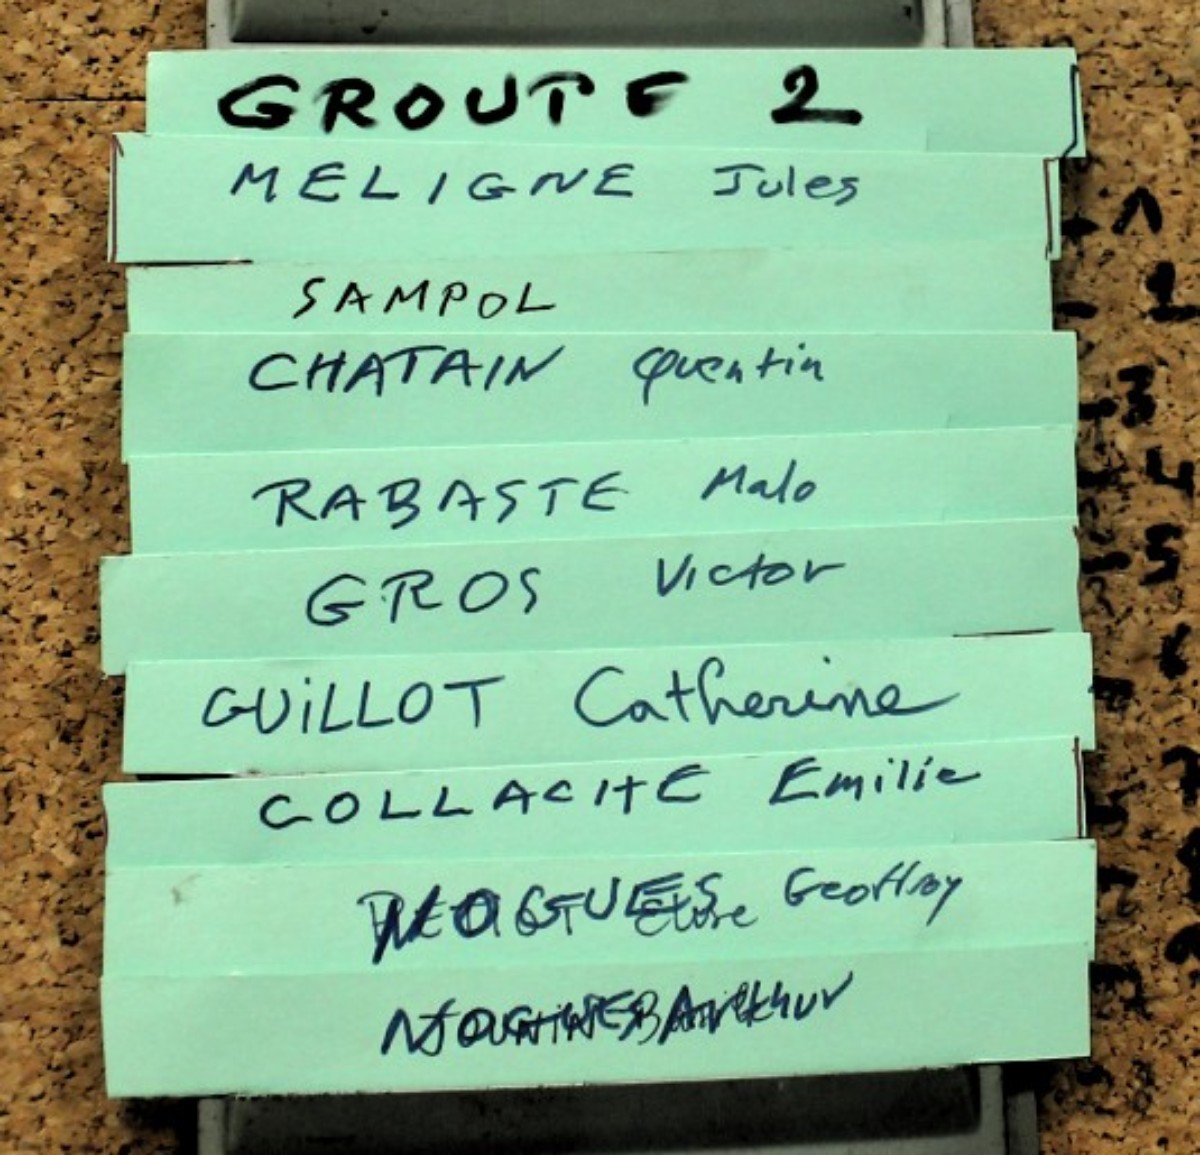 GROUPE 2
MELIGNE Jules - 1
SAMPOL - 2
CHATAIN Quentin - 3
RABASTE Malo - 4
GROS Victor - 5
GUILLOT Catherine - 6
COLLACHE Emilie - 7
NOGUES Geoffroy
NOGUES Arthur